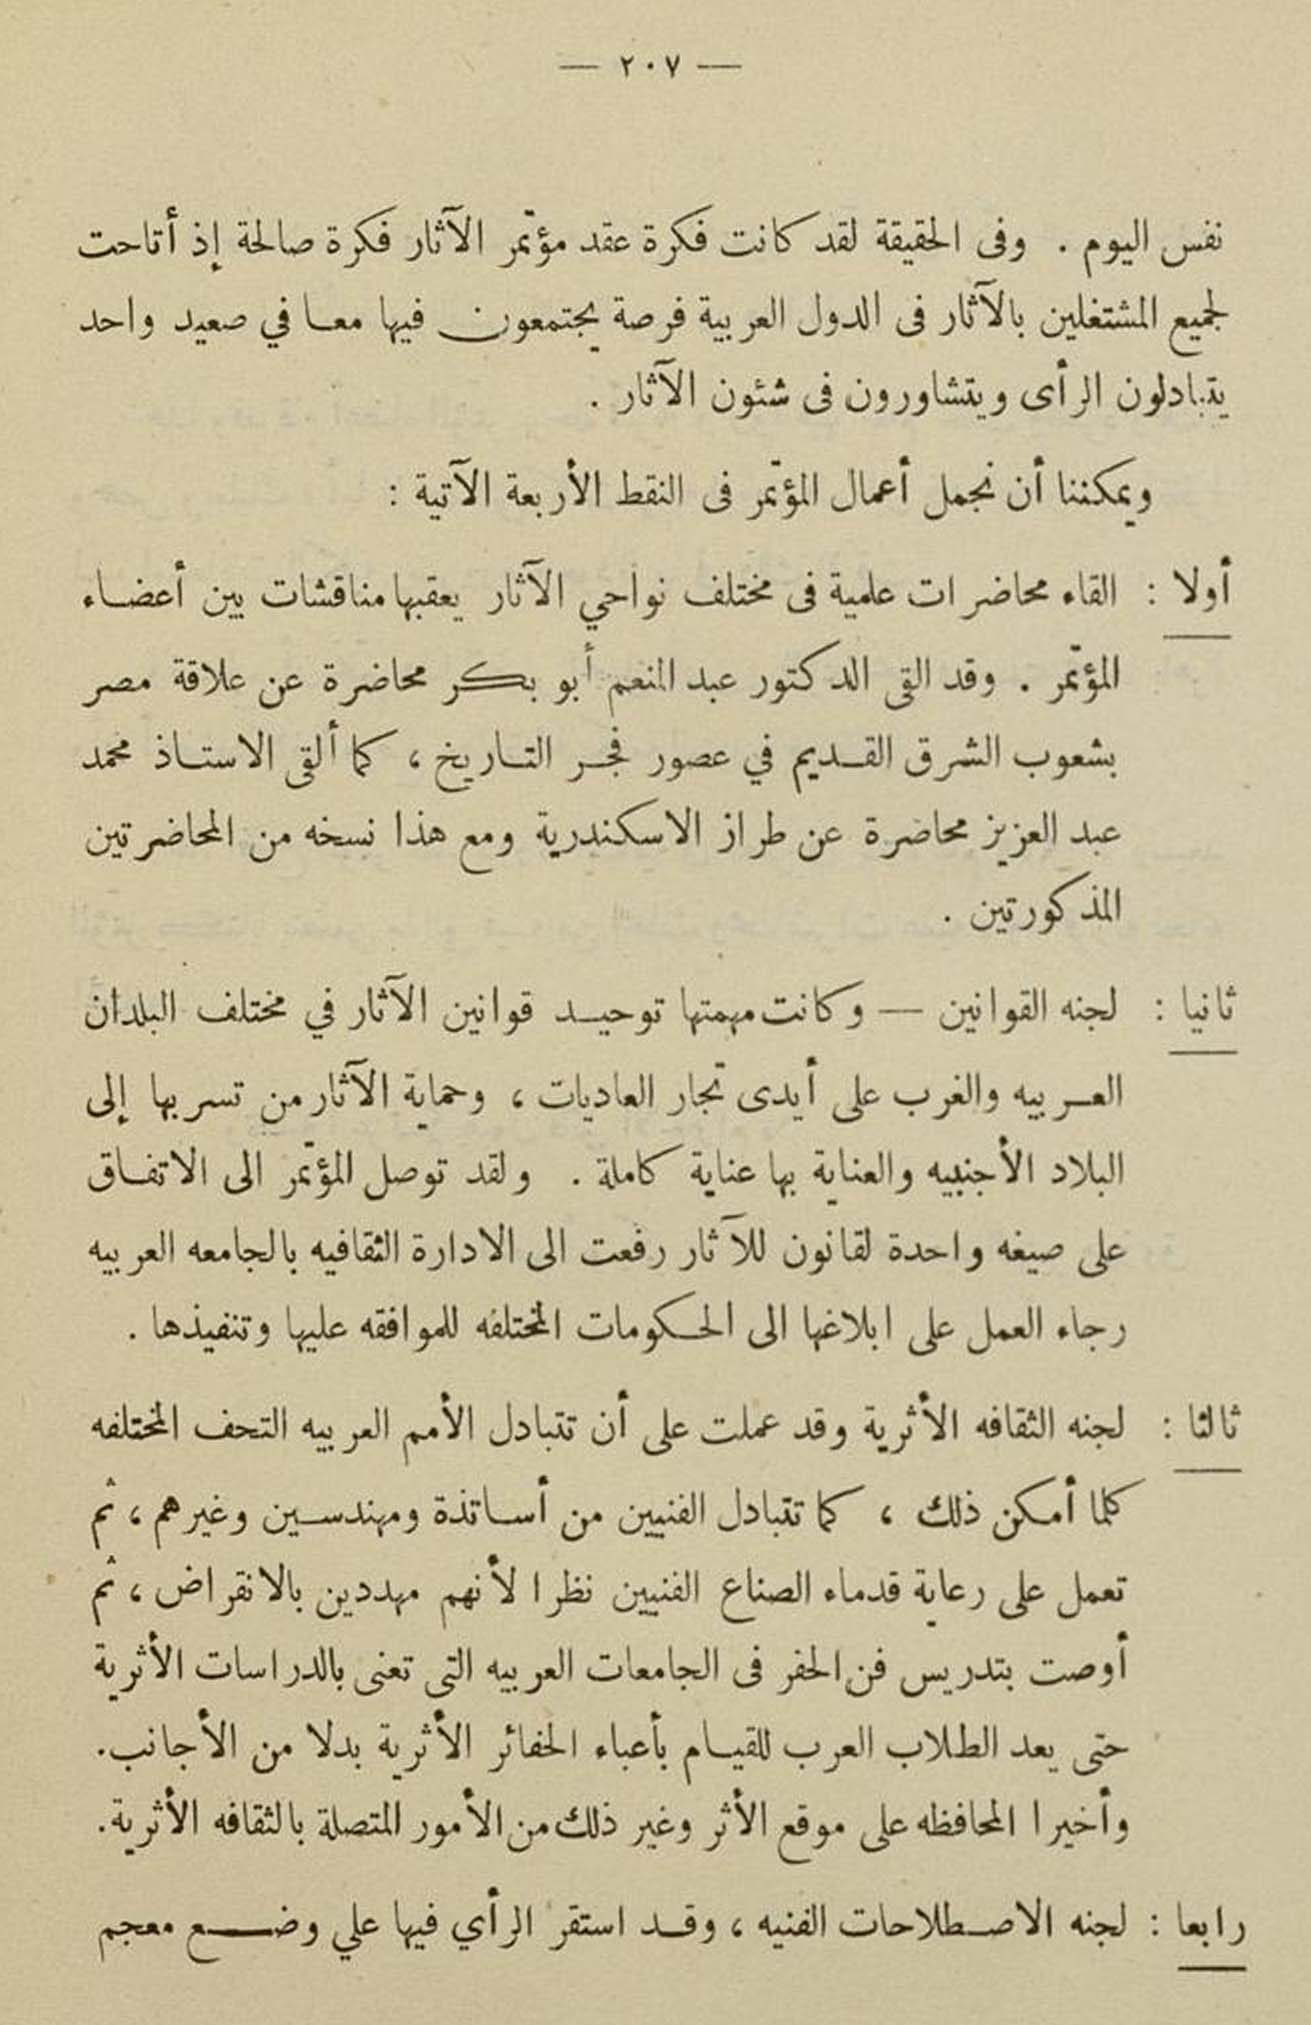 — ٢٠٧ —
نفس اليوم . وفى الحقيقة لقد كانت فكرة عقد مؤتمر الآثار فكرة صالحة إذ أتاحت
لجميع المشتغلين بالآثار فى الدول العربية فرصة يجتمعون فيها معا في صعيد واحد
يتبادلون الرأى ويتشاورون فى شئون الآثار .
ويمكننا أن نجمل أعمال المؤتمر فى النقط الأربعة الآتية :
أولا : القاء محاضرات علمية فى مختلف نواحي الآثار يعقبها مناقشات بين أعضاء
المؤتمر . وقد القى الدكتور عبد المنعم أبو بكر محاضرة عن علاقة مصر
بشعوب الشرق القديم في عصور فجر التاريخ ، كما ألقى الاستاذ محمد
عبد العزيز محاضرة عن طراز الاسكندرية ومع هذا نسخه من المحاضرتين
المذكورتين .
ثانيا : لجنه القوانين — وكانت مهمتها توحيد قوانين الآثار في مختلف البلدان
العربيه والغرب على أيدى تجار العاديات ، وحماية الآثار من تسربها إلى
البلاد الأجنبيه والعناية بها عناية كاملة . ولقد توصل المؤتمر الى الاتفاق
على صيغه واحدة لقانون للآثار رفعت الى الادارة الثقافيه بالجامعه العربيه
رجاء العمل على ابلاغها الى الحكومات المختلفه للموافقه عليها وتنفيذها .
ثالثا : لجنه الثقافه الأثرية وقد عملت على أن تتبادل الأمم العربيه التحف المختلفه
كلما أمكن ذلك ، كما تتبادل الفنيين من أساتذة ومهندسين وغيرهم ، ثم
تعمل على رعاية قدماء الصناع الفنيين نظرا لأنهم مهددين بالانقراض ، ثم
أوصت بتدريس فن الحفر فى الجامعات العربيه التى تعنى بالدراسات الأثرية
حتى يعد الطلاب العرب للقيام بأعباء الحفائر الأثرية بدلا من الأجانب.
وأخيرا المحافظه على موقع الأثر وغير ذلك من الأمور المتصلة بالثقافه الأثرية.
رابعا : لجنه الاصطلاحات الفنيه ، وقد استقر الرأي فيها علي وضع معجم